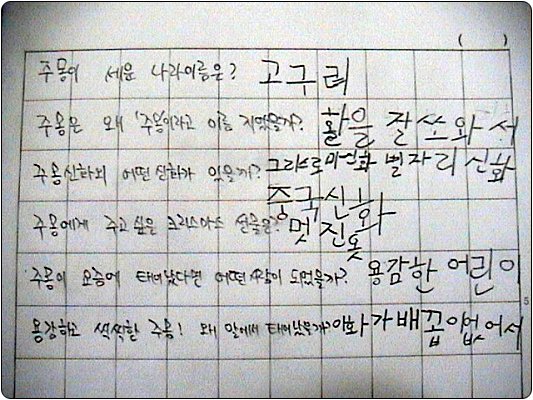 주몽이 세운 나라이름은? 고구려
주몽은 왜 '주몽'이라고 이름 지었을까? 활을 잘쏘와서
주몽신화외 어떤신화가 있을까? 그리스로마신화 별자리 신화
중국신화
주몽에게 주고싶은 크리스마스 선물은? 멋진옷
주몽이 요즘에 태어났다면 어떤사람이 되었을까? 용감한 어린이
용감하고 씩씩한 주몽! 왜 알에서 태어났을까? 엄마가배꼽이없어서